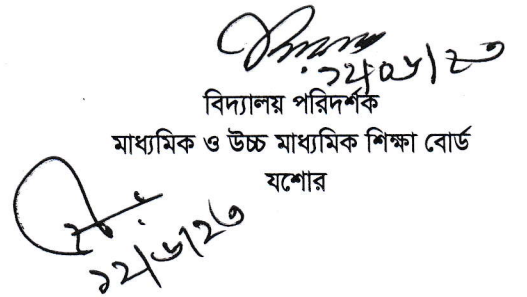 ১২/০৬/২৩
বিদ্যালয় পরিদর্শক
মাধ্যমিক ও উচ্চ মাধ্যমিক শিক্ষা বোর্ড
যশোর
১২/৬/২৩